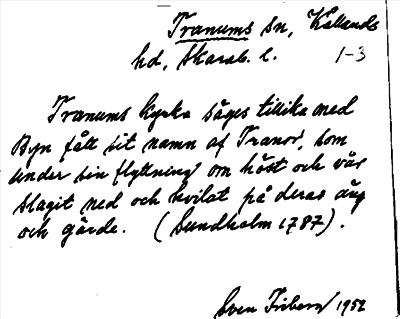 Tranums sn, Kållands
hd, Skarab. l. 1-3
Tranums kyrka säges tillika med
Byn fått sit namn af Tranor, som
under sin flyttning om höst och vår
slagit ned och hvilat på deras äng
och gärde. (Sundholm 1787).
Sven Friberg 1952